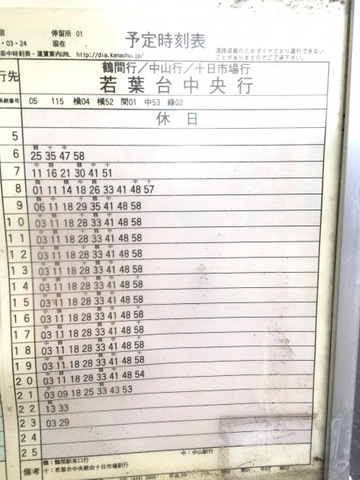 宿 停留所 01
・03・24 現在 予定時刻表
奈中時刻表・運賃案内URL http://dia.kanachu.jp/
道路混雑のためダイヤどおり運行できない
ことがありますのでご了承下さい。
行先 鶴間行／中山行／十日市場行
若葉台中央行
系統番号 05 115 横04 横52 間01 中53 峰02
休日
5
6 25 35 47 58
7 11 16 21 30 41 51
8 01 11 14 18 26 33 41 48 57
9 06 11 18 29 35 41 48 58
10 03 11 18 28 33 41 48 58
11 03 11 18 28 33 41 48 58
12 03 11 18 28 33 41 48 58
13 03 11 18 28 33 41 48 58
14 03 11 18 28 33 41 48 58
15 03 11 18 28 33 41 48 58
16 03 11 18 28 33 41 48 58
17 03 11 18 28 33 41 48 58
18 03 11 18 28 33 41 48 58
19 03 11 18 28 33 41 48 58
20 03 11 18 28 33 41 48 54
21 03 09 18 25 33 43 53
22 13 33
23 03 29
24
25
備考 鶴：鶴間駅東口行 中：中山駅行
十：若葉台中央経由十日市場駅行